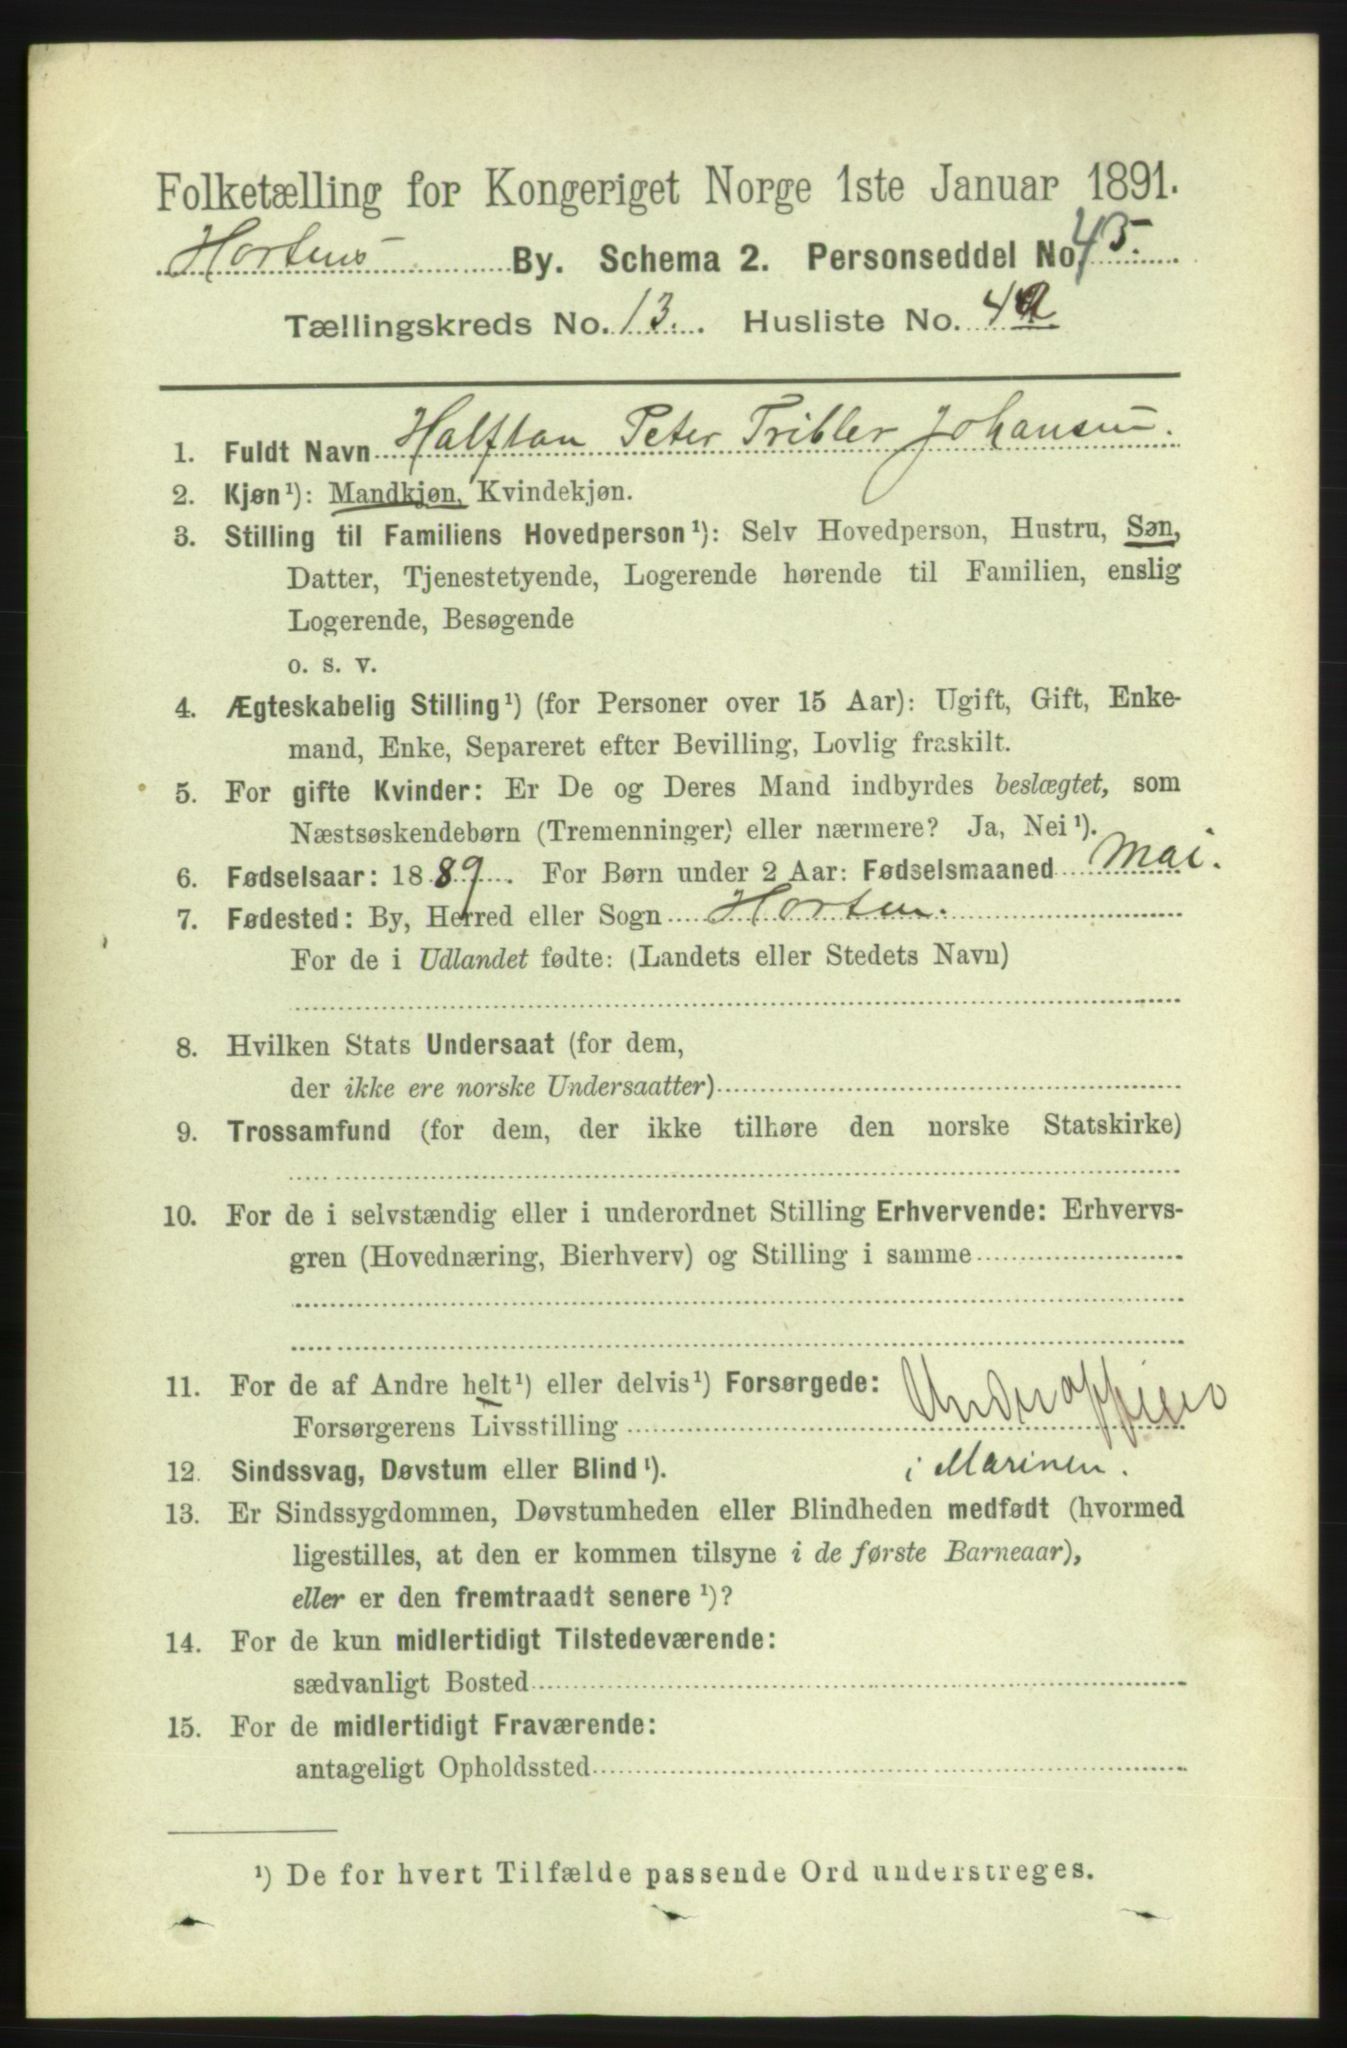 Folketælling for Kongeriget Norge 1ste Januar 1891.
Hortens By. Schema 2. Personseddel No. 45.
Tællingskreds No. 13. Husliste No. 42
1. Fuldt Navn Halfdan Peter Tribler Johansen.
2. Kjøn¹): Mandkjøn, Kvindekjøn.
3. Stilling til Familiens Hovedperson¹): Selv Hovedperson, Hustru, Søn,
Datter, Tjenestetyende, Logerende hørende til Familien, enslig
Logerende, Besøgende
o. s. v.
4. Ægteskabelig Stilling¹) (for Personer over 15 Aar): Ugift, Gift, Enke-
mand, Enke, Separeret efter Bevilling, Lovlig fraskilt.
5. For gifte Kvinder: Er De og Deres Mand indbyrdes beslægtet, som
Næstsøskendebørn (Tremenninger) eller nærmere? Ja, Nei¹).
6. Fødselsaar: 1889. For Børn under 2 Aar: Fødselsmaaned Mai.
7. Fødested: By, Herred eller Sogn Horten.
For de i Udlandet fødte: (Landets eller Stedets Navn)
8. Hvilken Stats Undersaat (for dem,
der ikke ere norske Undersaatter)
9. Trossamfund (for dem, der ikke tilhøre den norske Statskirke)
10. For de i selvstændig eller i underordnet Stilling Erhvervende: Erhvervs-
gren (Hovednæring, Bierhverv) og Stilling i samme
11. For de af Andre helt¹) eller delvis¹) Forsørgede:
Forsørgerens Livsstilling
i Marinen.
12. Sindssvag, Døvstum eller Blind¹).
13. Er Sindssygdommen, Døvstumheden eller Blindheden medfødt (hvormed
ligestilles, at den er kommen tilsyne i de første Barneaar),
eller er den fremtraadt senere¹)?
14. For de kun midlertidigt Tilstedeværende:
sædvanligt Bosted
15. For de midlertidigt Fraværende:
antageligt Opholdssted
¹) De for hvert Tilfælde passende Ord understreges.